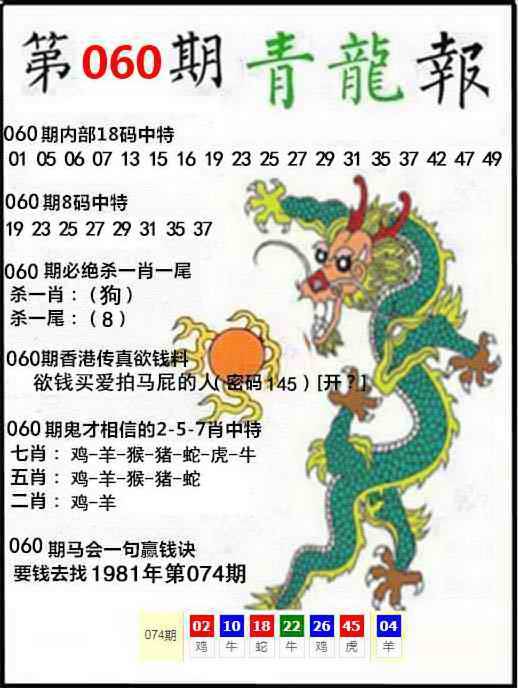 第060期青龍報
060期内部18码中特
01 05 06 07 13 15 16 19 23 25 27 29 31 35 37 42 47 49
060期8码中特
19 23 25 27 29 31 35 37
060 期必绝杀一肖一尾
杀一肖：（狗）
杀一尾：（8）
060期香港传真欲钱料
欲钱买爱拍马屁的人(密码145）[开？]
060期鬼才相信的2-5-7肖中特
七肖：鸡-羊-猴-猪-蛇-虎-牛
五肖：鸡-羊-猴-猪-蛇
二肖：鸡-羊
060期马会一句赢钱诀
要钱去找1981年第074期
074期 02 10 18 22 26 45 04
鸡 牛 蛇 牛 鸡 虎 羊